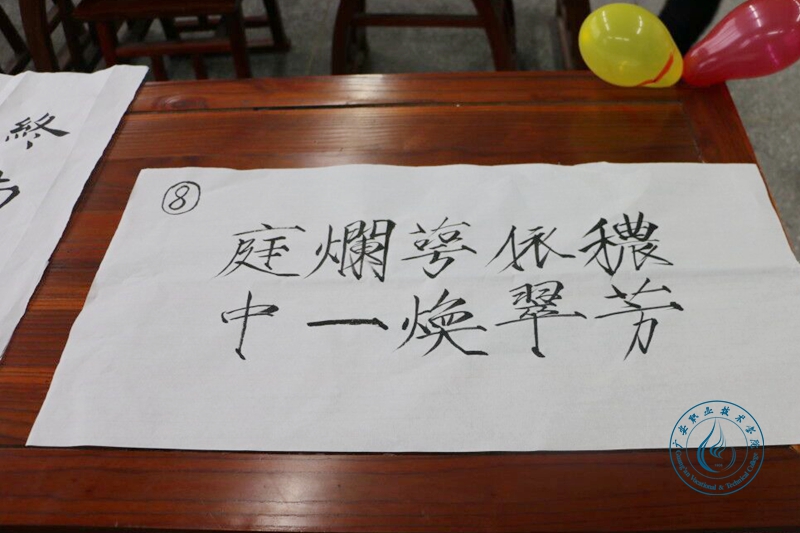 ⑧
穠芳
依翠
萼煥
爛一
庭中
終
广安职业技术学院
Guang'an Vocational & Technical College